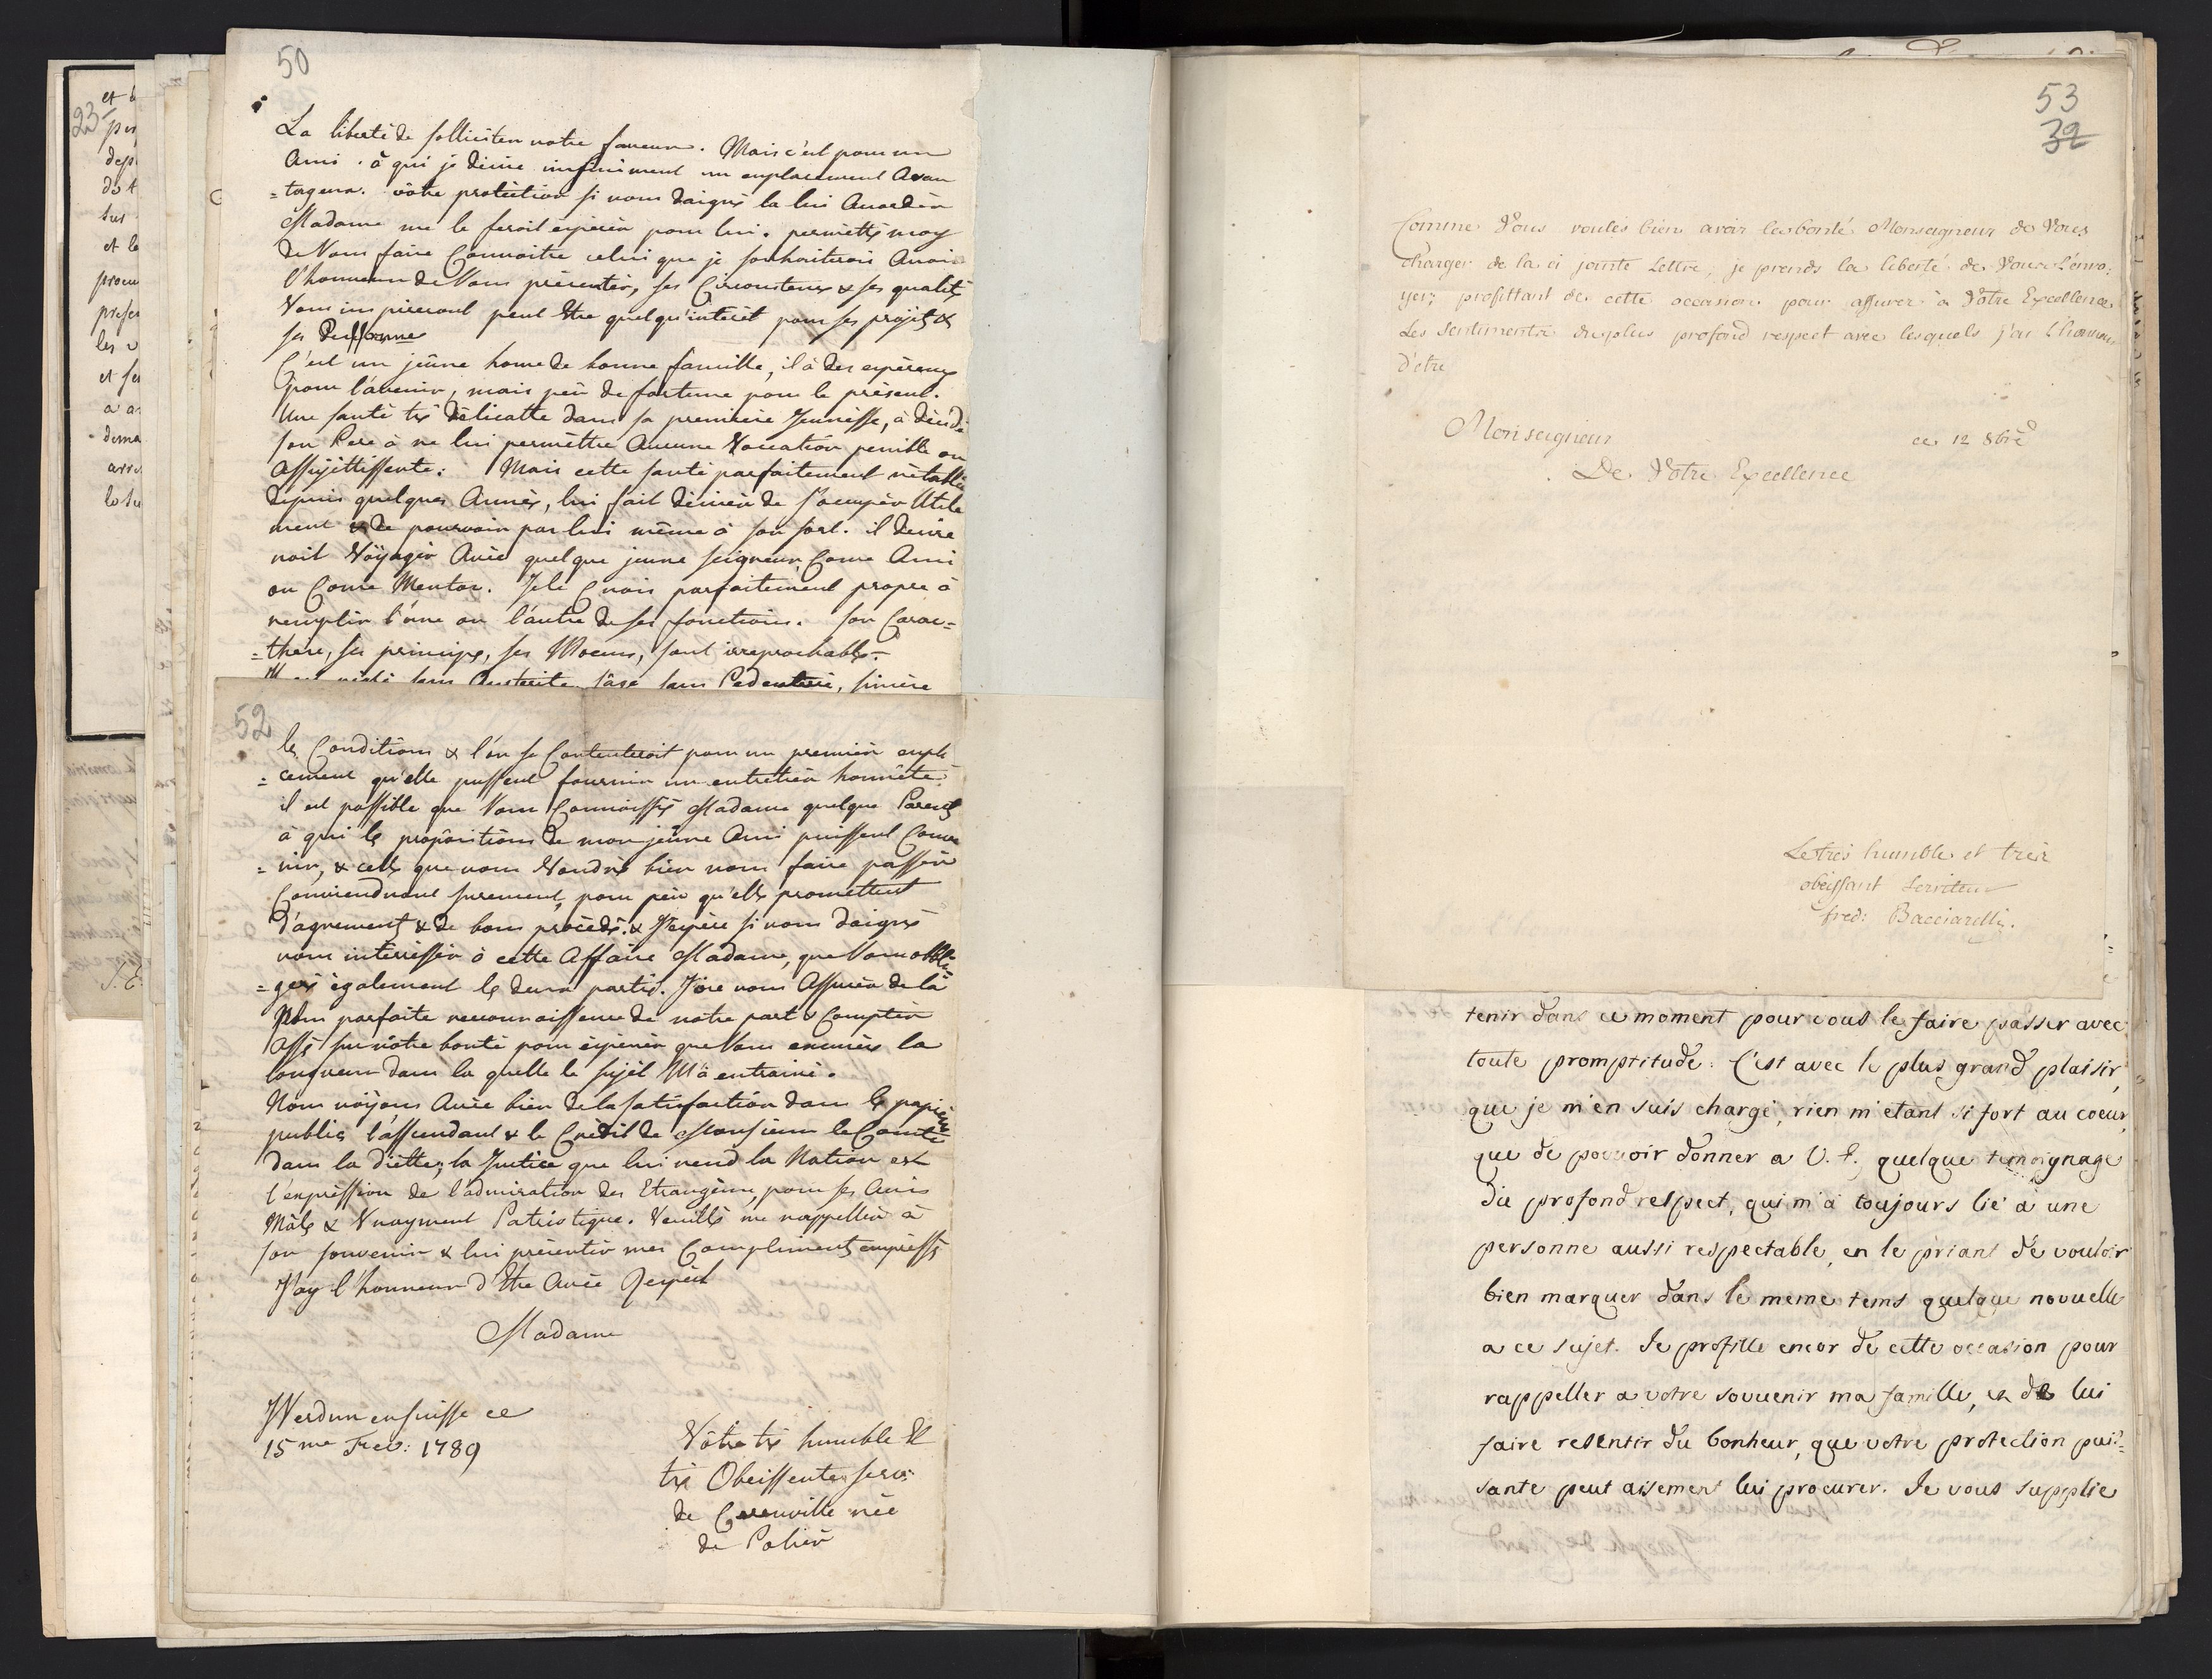 23
et b
pr
dep
du
sur
et le
procu
prese
les
et se
a a
dema
arr
50
La liberté de solliciter votre faveur. Mais c'est pour un
Ami . à qui je désire infiniment un emplacement Avan
=tageux. vôtre protéction si vous daignés la lui Accordèr
Madame me le feroit éspérèr pour lui. permettés moy
de Vous faire Connoitre celui que je souhaiterois Avoir
l'honneur de Vous présentèr, ses Circonstences & ses qualités
Vous inspireront peut Etre quelqu'intérèt pour ses projets &
sa Personne
C'est un jeûne home de bonne famille, il à des espérences
pour l'avenir, mais peû de fortune pour le présent.
Une santé trés délicatte dans sa premiére Jeunèsse, à décidé
son Pere à ne lui permèttre Aucune Vocation penible ou
Assujèttissente: Mais cette santé parfaitement rétablie
depuis quelques Années, lui fait désirèr de s'occupèr Utile
ment & de pourvoir par lui même à son sort. il desire
roit Vöyagèr Avéc quelque jeune seigneur Come Ami
ou Come Mentor. Je le Crois parfaitement propre à
remplir l'une ou l'autre de ses fonctions. son Carac=
=there, ses principes, ses Moeurs, sont irreprochables.
sans Austerité, sans Pedenterie, sincère
52
les Conditions & l'on se Contenteroit pour un premièr empla
=cement qu'elle pussent fournir un entretien honnête.
il est possible que Vous Connoissiés Madame quelque Parents
à qui les propositions de mon jeûne Ami puissent Conve
=nir, & celles que vous Voudrés bien nous faire passèr
Conviendront surement, pour peû qu'elles promettent
d'agrements & de bons procédés. & J'éspère si vous daignés
vous intéréssèr à cette Affaire Madame, que Vous obli
=gerés également les deux partis. J'ose vous Assurèr de la
plus parfaite reconnoissence de notre part & Comptèr
Assés sur vôtre bonté pour éspérèr que Vous excuserés la
longueur dans la quelle le sujèt M'à entrainé.
Nous vöyons Avéc bien de la satisfaction dans les papièrs
publics l'assendant & le Crédit de Monsieur le Comte
dans la Diètte, la Justice que lui rend la Nation est
l'expréssion de l'admiration des Etrangèrs, pour ses Avis
Mâles & Vrayment Patriotique. Veuillés me rappellèr à
son souvenir & lui présentèr mes Compliments empréssés
J'ay l'honneur d'Etre Avéc Respèct
Madame
Yverdun en suisse ce
15 me Frev: 1789
Vôtre trés humble Et
trés Obeissente serv:
de Cerenville née
de Polièr
53
32
Comme Vous voulés bien avoir les bonté Monseigneur de Vous
charger de la ci jointe Lettre, je prends la liberté de Vous L'envo:
yer; profittant de cette occasion pour assurer à Votre Excellence
Les sentiments du plus profond respect avec lesquels j'ai L'honneur
d'être
Monseigneur
ce 12 8bre
De Votre Excellence
Le très humble et très
obeissant Serviteur
fred: Bacciarelli.
tenir dans ce moment pour vous le faire passer avec
toute promptitude: C'est avec le plus grand plaisir,
que je m'en suis chargé, rien m'etant si fort au coeur,
que de pouvoir donner a V. E. quelque temoignage
du profond respect, qui m'a toujours lié à une
personne aussi respectable, en le priant de vouloir
bien marquer dans le meme tems quelque nouvelle
a ce sujet. Je profitte encor de cette occasion pour
rappeller a votre souvenir ma famille, et de lui
faire resentir du bonheur, que votre protection puis=
sante peut aisement lui procurer. Je vous supplie